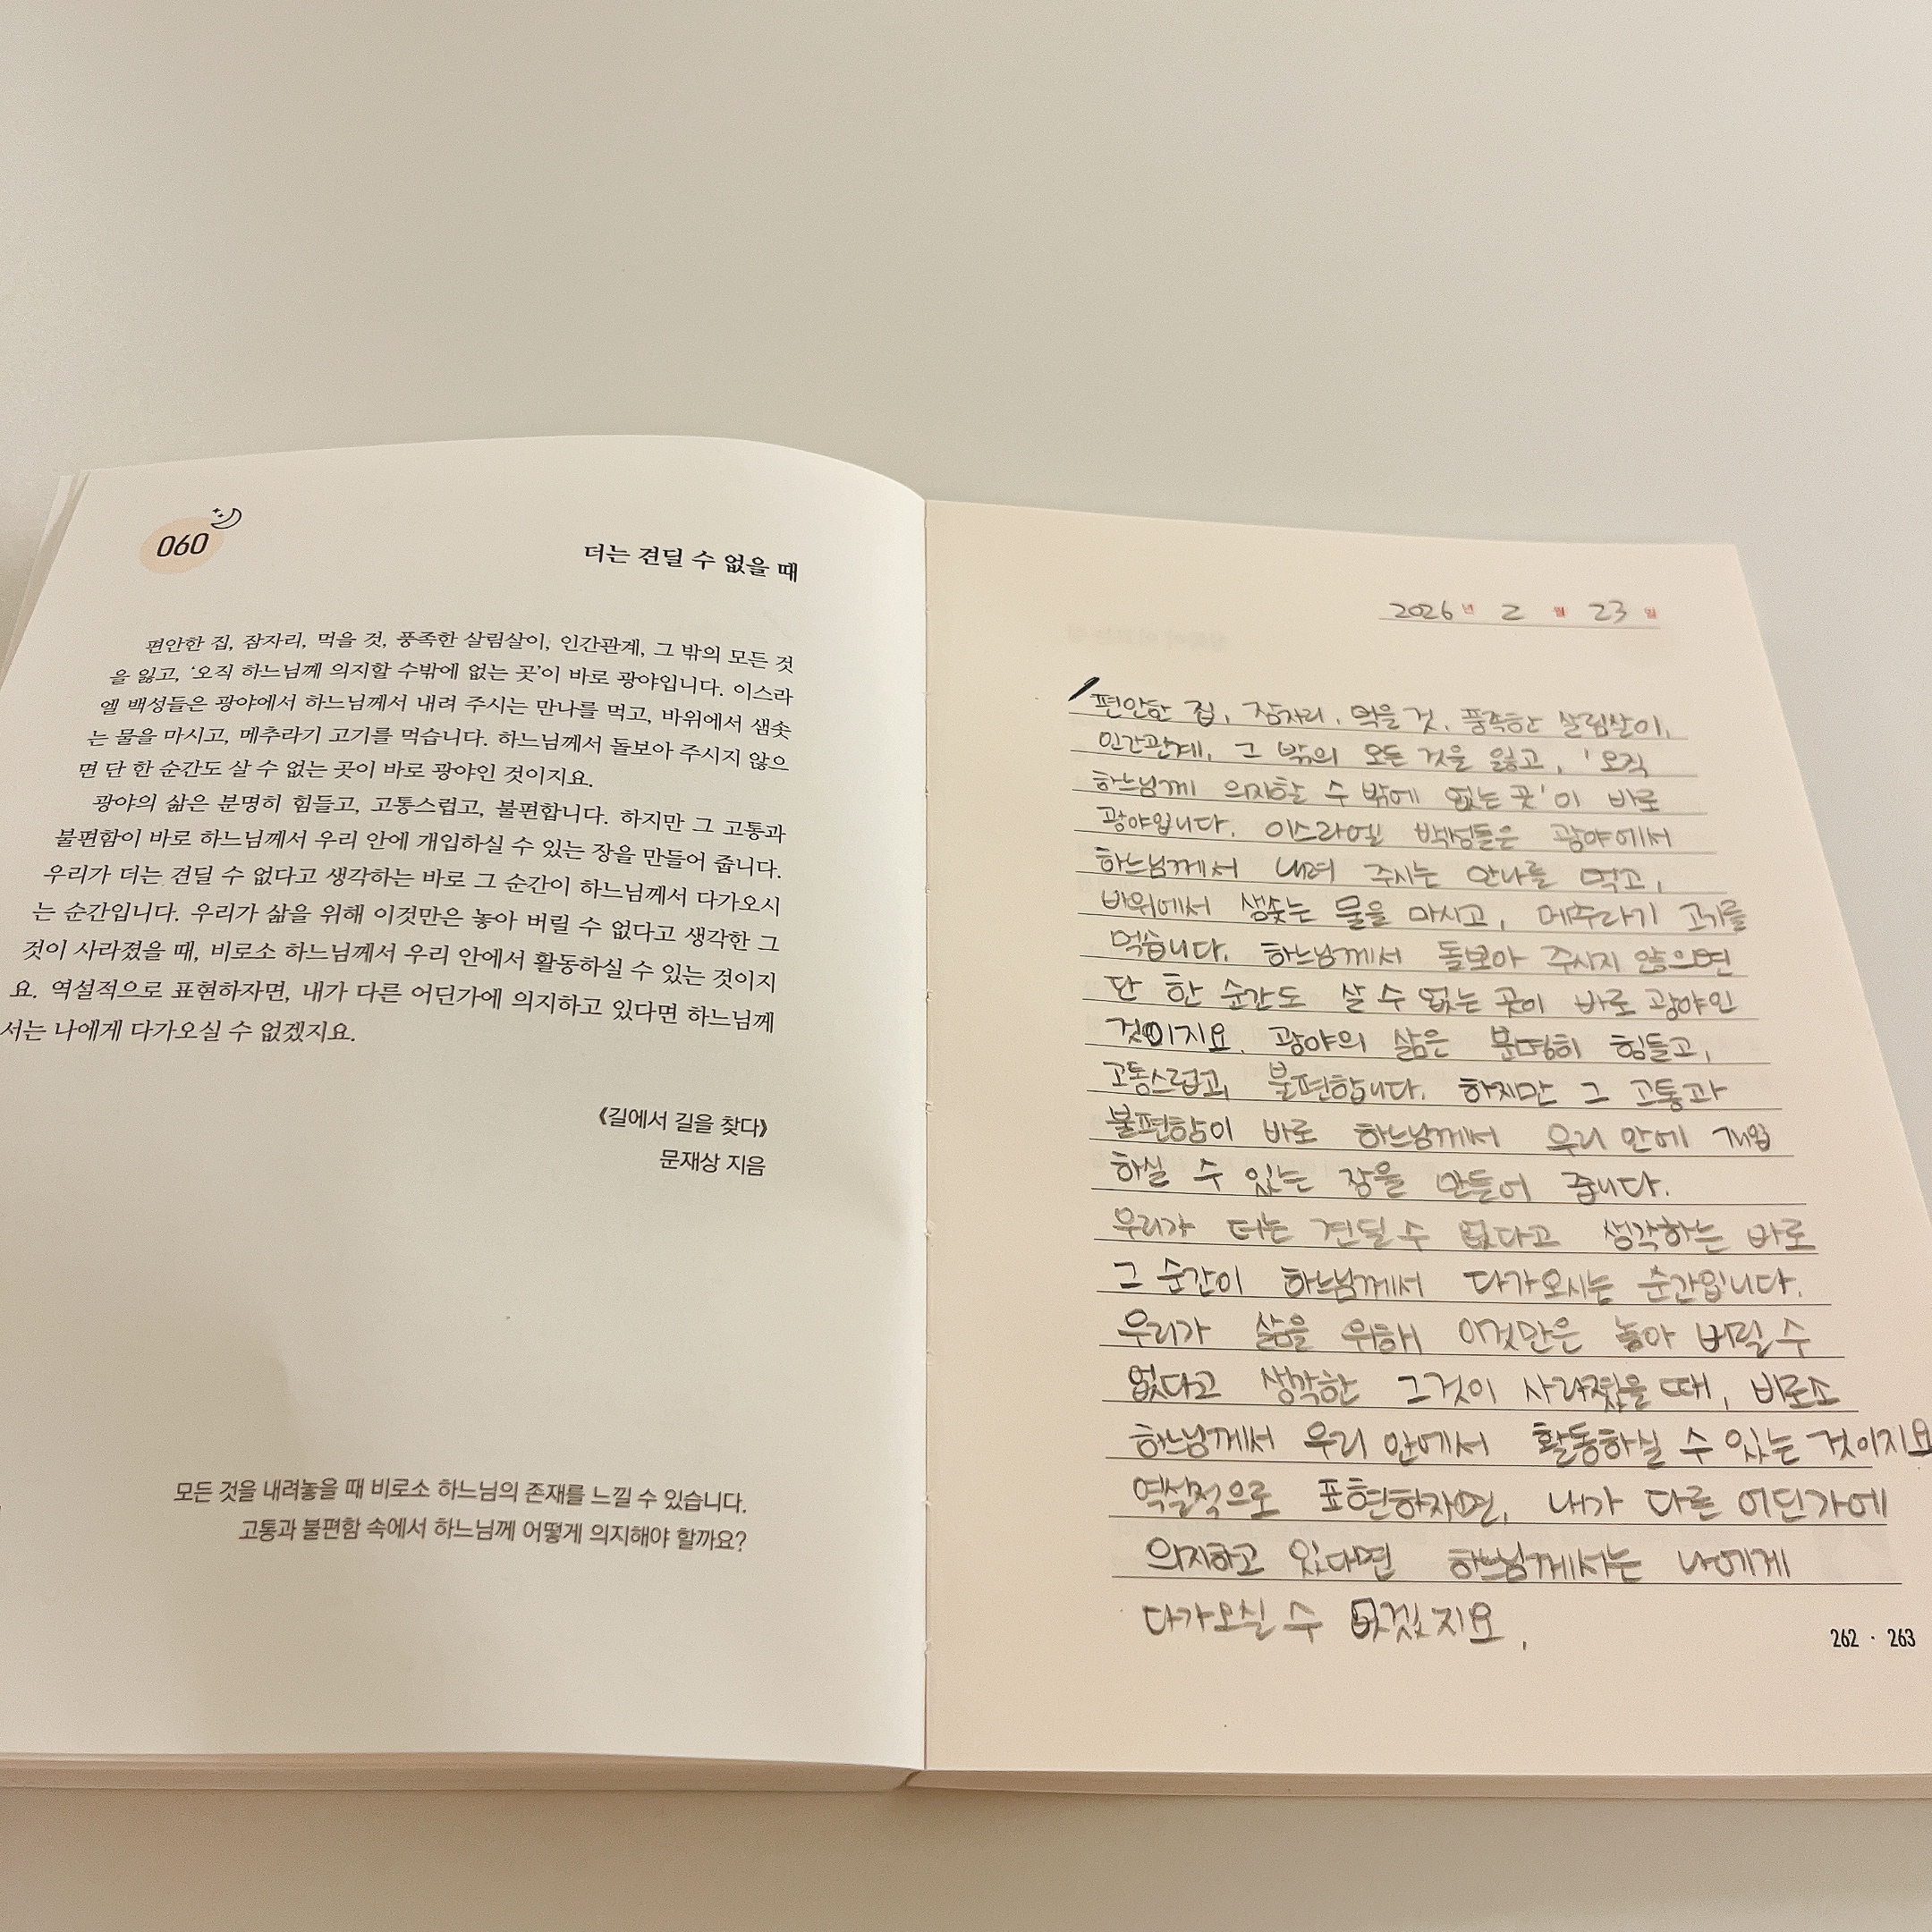 060
더는 견딜 수 없을 때
편안한 집, 잠자리, 먹을 것, 풍족한 살림살이, 인간관계, 그 밖의 모든 것
을 잃고, ‘오직 하느님께 의지할 수밖에 없는 곳’이 바로 광야입니다. 이스라
엘 백성들은 광야에서 하느님께서 내려 주시는 만나를 먹고, 바위에서 샘솟
는 물을 마시고, 메추라기 고기를 먹습니다. 하느님께서 돌보아 주시지 않으
면 단 한 순간도 살 수 없는 곳이 바로 광야인 것이지요.
광야의 삶은 분명히 힘들고, 고통스럽고, 불편합니다. 하지만 그 고통과
불편함이 바로 하느님께서 우리 안에 개입하실 수 있는 장을 만들어 줍니다.
우리가 더는 견딜 수 없다고 생각하는 바로 그 순간이 하느님께서 다가오시
는 순간입니다. 우리가 삶을 위해 이것만은 놓아 버릴 수 없다고 생각한 그
것이 사라졌을 때, 비로소 하느님께서 우리 안에서 활동하실 수 있는 것이지
요. 역설적으로 표현하자면, 내가 다른 어딘가에 의지하고 있다면 하느님께
서는 나에게 다가오실 수 없겠지요.
《길에서 길을 찾다》
문재상 지음
모든 것을 내려놓을 때 비로소 하느님의 존재를 느낄 수 있습니다.
고통과 불편함 속에서 하느님께 어떻게 의지해야 할까요?
2026년 2월 23일
편안한 집, 잠자리, 먹을 것, 풍족한 살림살이,
인간관계, 그 밖의 모든 것을 잃고, '오직
하느님께 의지할 수 밖에 없는 곳'이 바로
광야입니다. 이스라엘 백성들은 광야에서
하느님께서 내려 주시는 만나를 먹고,
바위에서 샘솟는 물을 마시고, 메추라기 고기를
먹습니다. 하느님께서 돌보아 주시지 않으면
단 한 순간도 살 수 없는 곳이 바로 광야인
것이지요. 광야의 삶은 분명히 힘들고,
고통스럽고, 불편합니다. 하지만 그 고통과
불편함이 바로 하느님께서 우리 안에 개입
하실 수 있는 장을 만들어 줍니다.
우리가 더는 견딜 수 없다고 생각하는 바로
그 순간이 하느님께서 다가오시는 순간입니다.
우리가 삶을 위해 이것만은 놓아 버릴 수
없다고 생각한 그것이 사라졌을 때, 비로소
하느님께서 우리 안에서 활동하실 수 있는 것이지요
역설적으로 표현하자면, 내가 다른 어딘가에
의지하고 있다면 하느님께서는 나에게
다가오실 수 없겠지요.
262 · 263